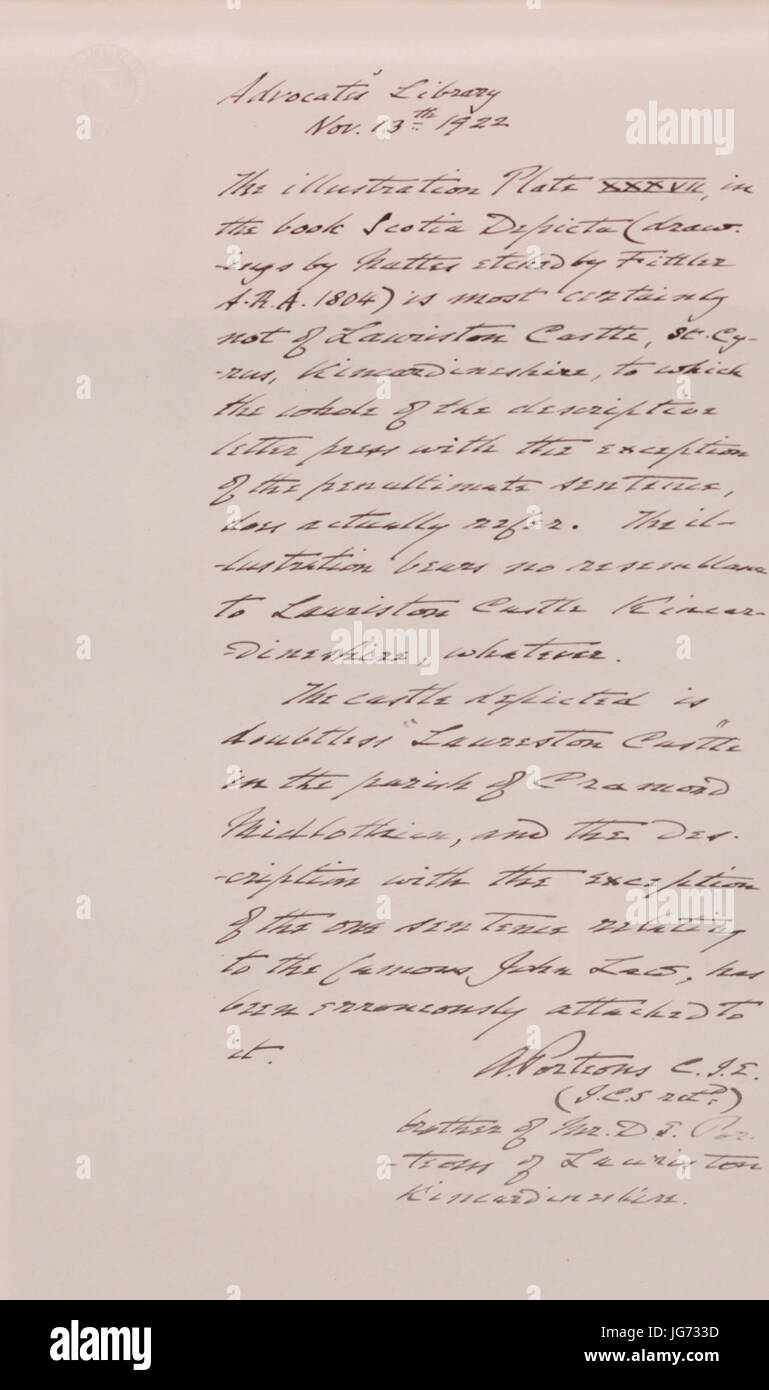 Advocates' Library
Nov. 13th 1922
The illustration Plate XXXVII, in
the book Scotia Depicta (draw-
-ings by Nattes etched by Fittler
A.R.A. 1804) is most certainly
not of Lauriston Castle, St. Cy-
-rus, Kincardineshire, to which
the whole of the descriptive
letter press with the exception
of the penultimate sentence,
does actually refer. The il-
-lustration bears no resemblance
to Lauriston Castle Kincar-
-dineshire, whatever.
The castle depicted is
doubtless "Laureston Castle"
in the parish of Cramond
Midlothian, and the des-
-cription with the exception
of the one sentence relating
to the famous John Law, has
been erroneously attached to
it.
A. Porteous C.I.E.
(I.C.S retd.)
brother of Mr. D S. Por-
-teous of Lauriston
Kincardineshire.
alamy
alamy
alamy
alamy stock photo
JG733D
www.alamy.com